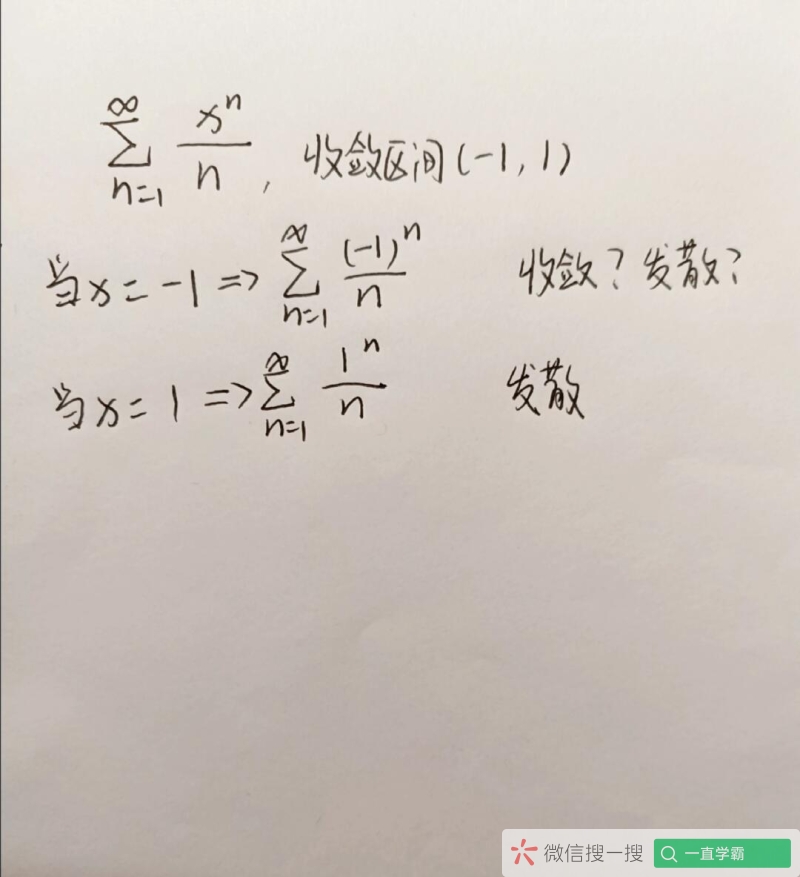 ∑_{n=1}^{∞} x^n/n, 收敛区间(-1,1)
当x=-1 => ∑_{n=1}^{∞} (-1)^n/n 收敛?发散?
当x=1 => ∑_{n=1}^{∞} 1^n/n 发散
微信搜一搜 一直学霸